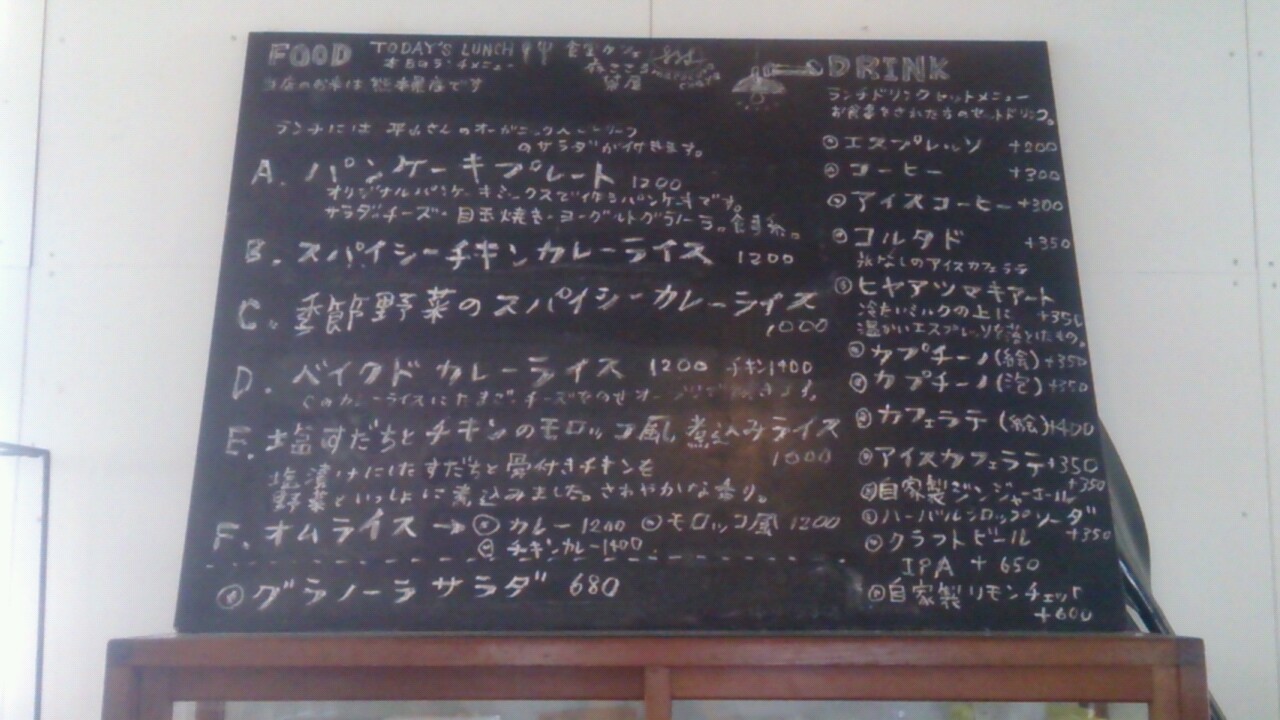 FOOD TODAY'S LUNCH 食堂カフェ
本日のランチメニュー
当店のお米は 熊本県産です
ランチには 平山さんのオーガニック
のサラダが付きます。
A. パンケーキプレート 1200
オリジナルパンケーキミックスで作るパンケーキです。
サラダ・チーズ・目玉焼き・ヨーグルトグラノーラ。食事系。
B. スパイシーチキンカレーライス 1200
C. 季節野菜のスパイシーカレーライス
1000
D. ベイクドカレーライス 1200 チキン1400
Cのカレーライスにたまご、チーズをのせ
E. 塩すだちとチキンのモロッコ風煮込みライス
1000
塩漬けにしたすだちと骨付きチキンを
野菜といっしょに煮込みました。さわやかな香り。
F. オムライス → カレー 1200 モロッコ風 1200
チキンカレー1400
グラノーラサラダ 680
DRINK
ランチドリンクセットメニュー
お食事をされた方のセットドリンク。
エスプレッソ +200
コーヒー +300
アイスコーヒー +300
コルタド +350
氷なしのアイスカフェラテ
ヒヤアツマキアート
冷たいミルクの上に +350
温かいエスプレッソを落としたもの。
カプチーノ(絵) +350
カプチーノ(泡) +350
カフェラテ (絵) +400
アイスカフェラテ +350
自家製ジンジャーエール +350
ハーバルシロップソーダ
+350
クラフトビール
IPA +650
自家製リモンチェッロ
+600